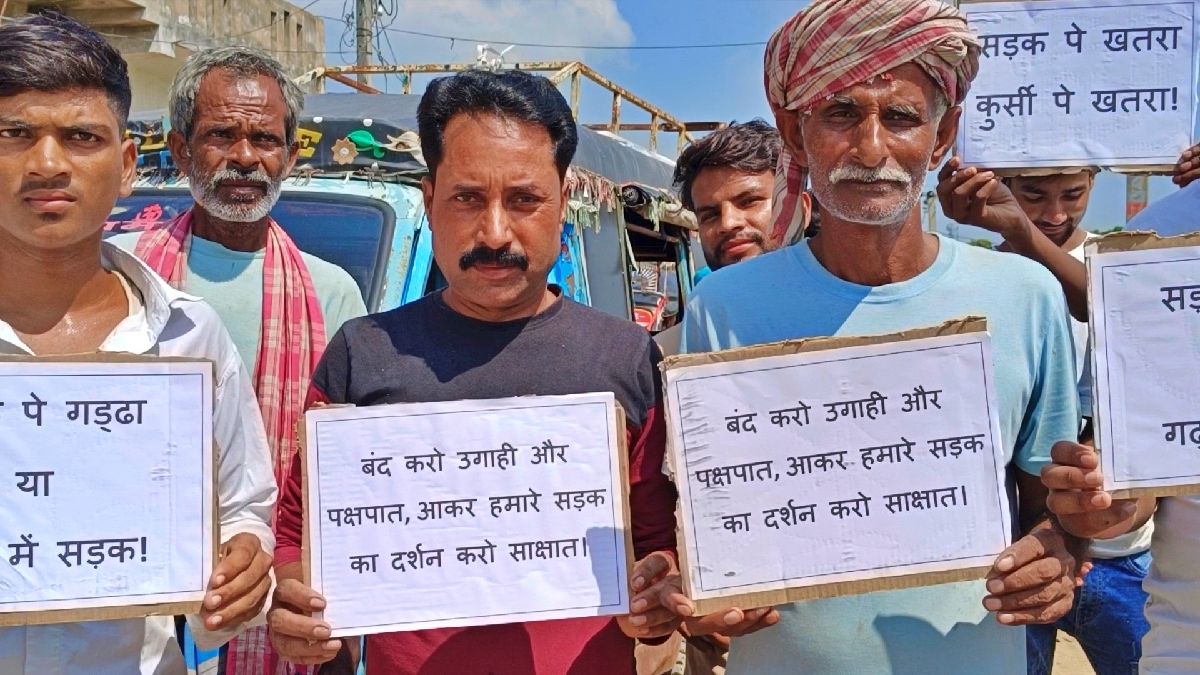 सड़क पे खतरा
कुर्सी पे खतरा!
पे गड्ढा
या
में सड़क!
बंद करो उगाही और
पक्षपात, आकर हमारे सड़क
का दर्शन करो साक्षात।
बंद करो उगाही और
पक्षपात, आकर हमारे सड़क
का दर्शन करो साक्षात।